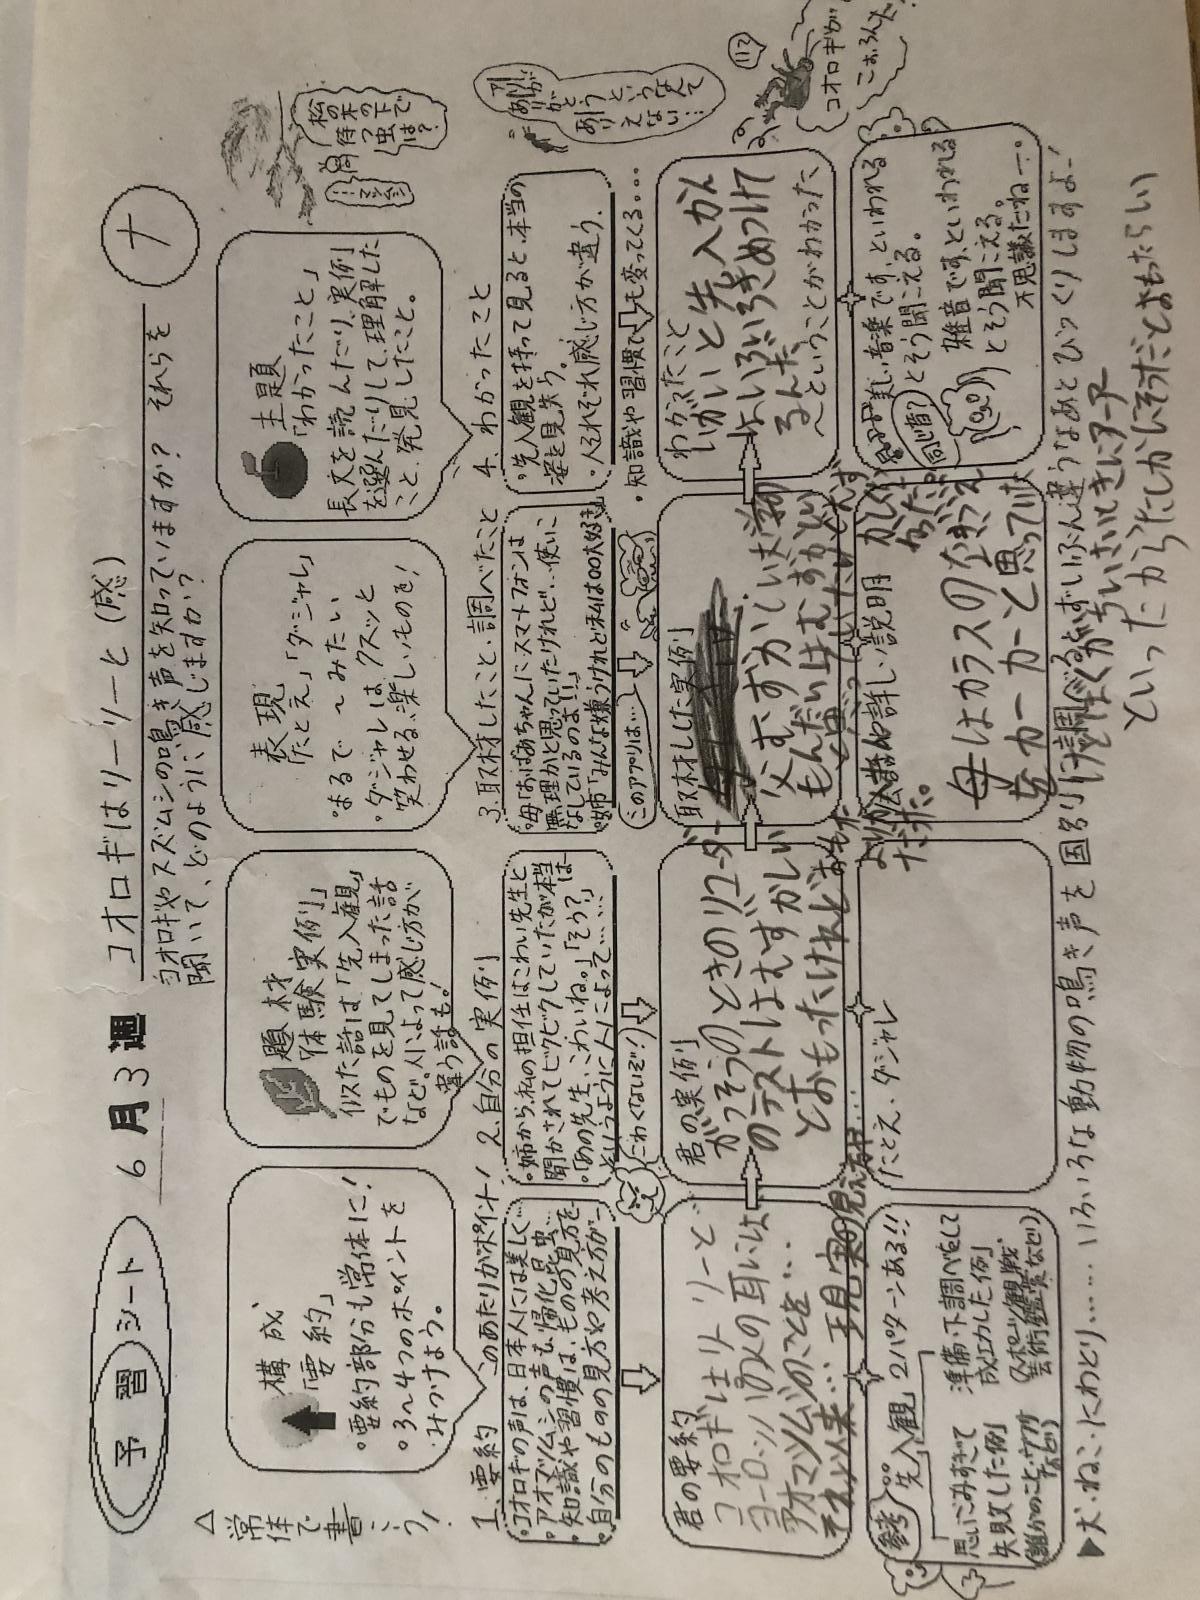 予習シート 6月3週 コオロギはリーリーと (感)
コオロギやスズムシの鳴き声を知っていますか? それらを
聞いて、どのように感じますか?
ナ
△常体で書こう!
構成
「要約」
・要約部分も常体に!
・3～4つのポイントを
みつけよう。
題材
「体験実例」
似た話は、「先入観」
でものを見てしまった話
など。人によって感じ方が
違う話も!
表現
「たとえ」「ダジャレ」
まるで～みたい
・ダジャレは、クスッと
笑わせる、楽しいものを!
主題
「わかったこと」
長文を読んだり、実例
を選んだりして、理解した
こと、発見したこと。
松の木の下で
待つ虫
は?
1. 要約 このあたりがポイント!
・コオロギの声は、日本人には美しく…
・アオマツムシの声も、帰化昆虫…
・知識や習慣は、ものの見方を…
・自分のものの見方や考え方が…
2. 自分の実例
・姉から、私の担任はこわい先生と
聞かされてビクビクしていたが、本当は…
・「あの先生、こわいね。」「そう?」
というように人によって……
こわくないぞ!
3. 取材したこと、調べたこと
・母「おばあちゃんにスマートフォンは
無理かと思っていたけれど…使いこ
なしているのよ!!」
・姉「みんな嫌うけれど私は○○大好き」
このアプリは…
4. わかったこと
・先入観を持って見ると、本当の
姿を見失う。
・人それぞれ感じ方が違う。
・知識や習慣でも変ってくる…
アリが
ありが
とうと
いうなんて
ありえない…
君の要約
コオロギはリーリーと…
ヨーロッパの人の耳には…
アオマツムシのことを…
それ以来…現実の見え方は…
君の実例
がっそうのときのリコーダー
のテストはむずかしい
とおもったけれど
取材した実例
父 むずかしい大学の
もんだいはむずかしい
と思っていたけどよ
わかったこと
しかいと先入かん
はいろいろきめつけて
るんだ
～ということがわかった
リリリ
コオロギが
こおろんだ!
参考
先入観 2パターンある!!
思いこみすぎて
失敗した例
準備・下調べをして
成功した例
(スポーツ観戦、
芸術鑑賞など)
たとえ・ダジャレ
詳しい説明
母はカラスのなきごえ
カーカーと思ってけ
ど ぼくがちいさいときにアー
といったからたしかにそうだとおもったらしい
美しい音楽です、といわれる
とそう聞こえる。
雑音です、といわれる
とそう聞こえる。
不思議だねー。
同じ音?
▶犬・ねこ・にわとり……いろいろな動物の鳴き声を国別に調べると、ずいぶん違うなあとびっくりしますよ!